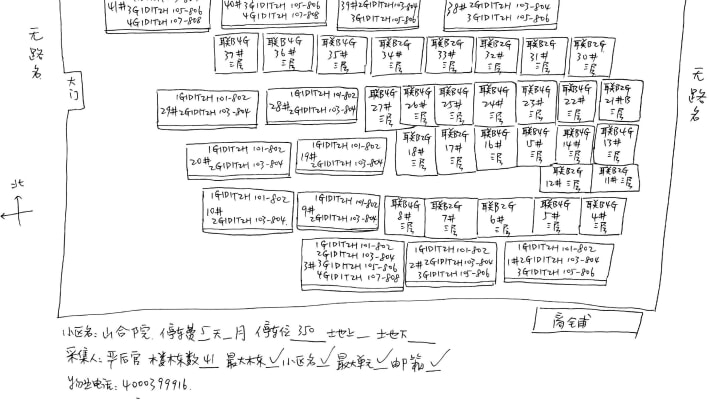 41# 3G1D1T2H 105-806
4G1D1T2H 107-808
40# 3G1D1T2H 105-806
4G1D1T2H 107-808
39# 2G1D1T2H 103-804
3G1D1T2H 105-806
38# 2G1D1T2H 103-804
3G1D1T2H 105-806
无路名
无路名
大门
北
联B4G
37#
三层
联B4G
36#
三层
联B4G
35#
三层
联B2G
34#
三层
联B2G
33#
三层
联B2G
32#
三层
联B2G
31#
三层
联B2G
30#
三层
1G1D1T2H 101-802
29# 2G1D1T2H 103-804
1G1D1T2H 101-802
28# 2G1D1T2H 103-804
联B4G
27#
三层
联B4G
26#
三层
联B4G
25#
三层
联B4G
24#
三层
联B4G
23#
三层
联B4G
22#
三层
联B2G
21#
三层
1G1D1T2H 101-802
20# 2G1D1T2H 103-804
1G1D1T2H 101-802
19#
2G1D1T2H 103-804
联B4G
18#
三层
联B2G
17#
三层
联B4G
16#
三层
联B4G
15#
三层
联B4G
14#
三层
联B4G
13#
三层
联B2G
12# 三层
联B2G
11# 三层
1G1D1T2H 101-802
10#
2G1D1T2H 103-804
1G1D1T2H 101-802
9#
2G1D1T2H 103-804
联B4G
8#
三层
联B2G
7#
三层
联B2G
6#
三层
联B4G
5#
三层
联B4G
4#
三层
1G1D1T2H 101-802
2G1D1T2H 103-804
3# 3G1D1T2H 105-806
4G1D1T2H 107-808
1G1D1T2H 101-802
2# 2G1D1T2H 103-804
3G1D1T2H 105-806
1G1D1T2H 101-802
1# 2G1D1T2H 103-804
3G1D1T2H 105-806
商全铺
小区名: 山合院 停车费 5 天 月 停车位 350 土地上 土地下
采集人: 平后官 楼栋数 41 最大栋 ✓ 小区名 ✓ 最大单元 ✓ 邮箱 ✓
物业电话: 4000399916.